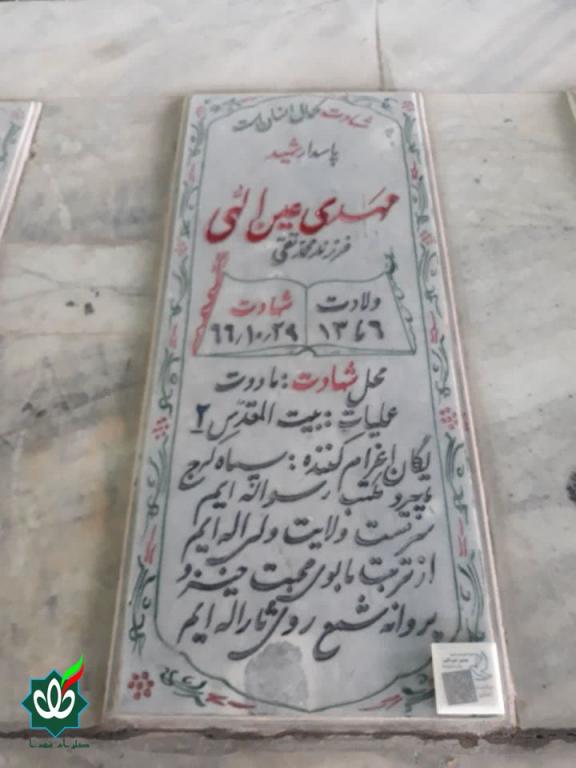 شهادت کمال انسان است
پاسدار رشید
مهدی عین الهی
فرزند محمد تقی
ولادت
شهادت
۱۳۴۶
۶۶٫۱۰٫۲۹
محل شهادت : ماووت
عملیات : بیت المقدس ۲
یگان اعزام کننده : سپاه کرج
ما پیرو مکتب رسول الله ایم
سرمست ولایت ولی اله ایم
از تربت ما بوی محبت خیزد
پروانه شمع روی ثاراله ایم
گلزار شهدا